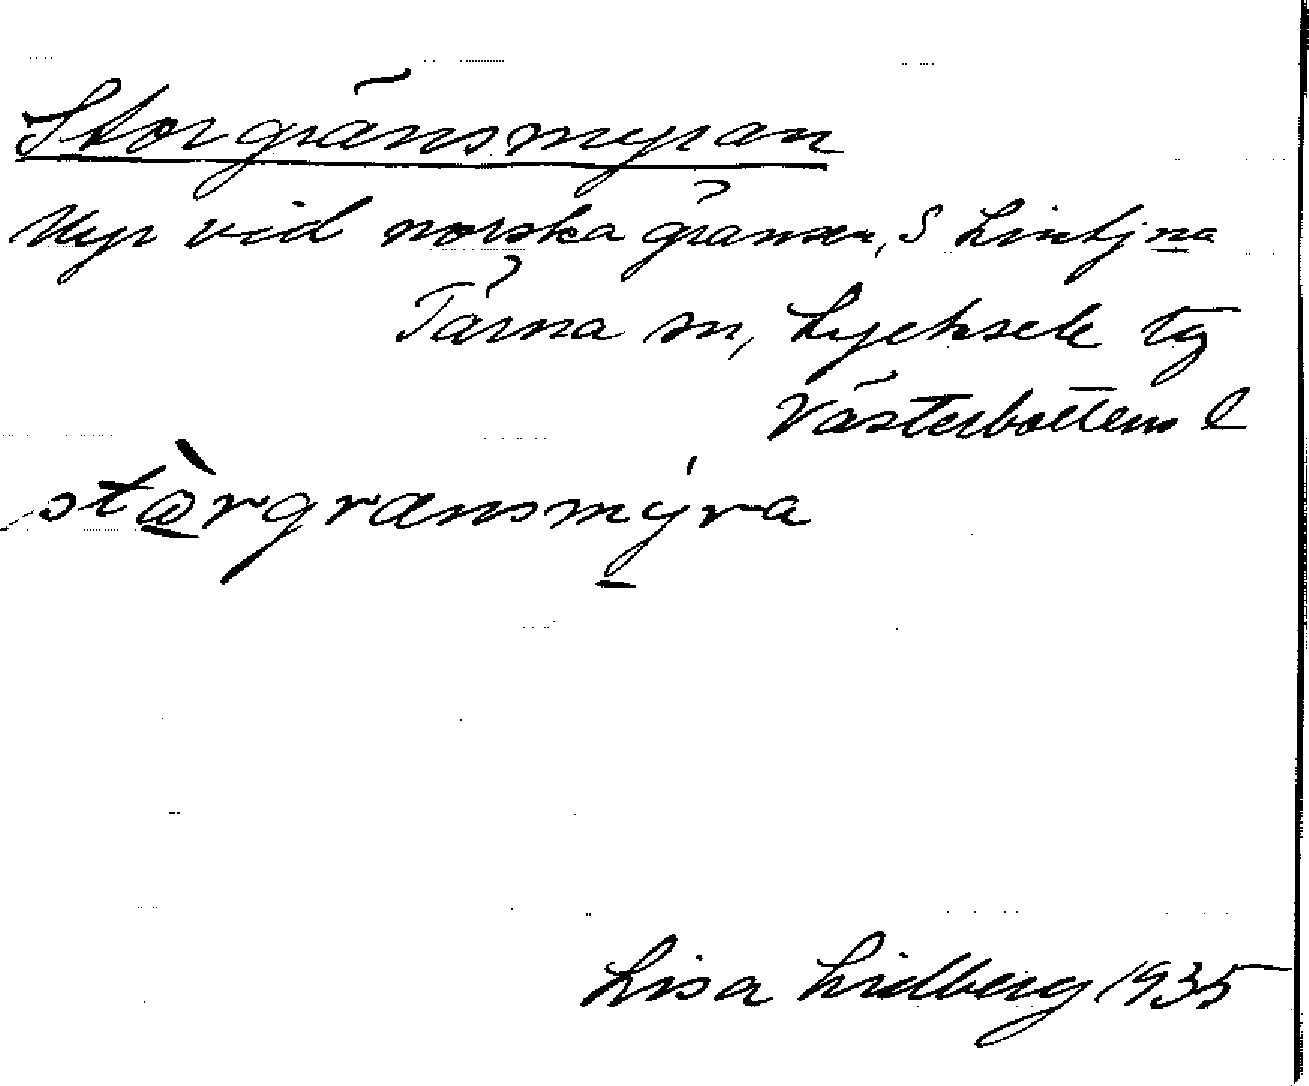 Storgränsmyran
Myr vid norska gränsen, S
Tärna sn, Lycksele tg
Västerbottens l
stὼrgrænsmýra
Lisa Lidberg 1935